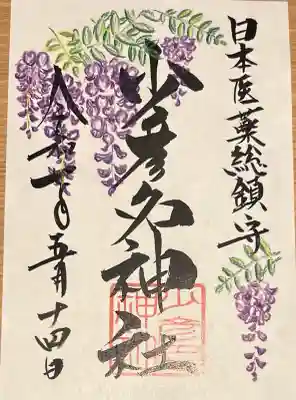 日本医薬総鎮守
少彦名神社
令和七年五月十四日